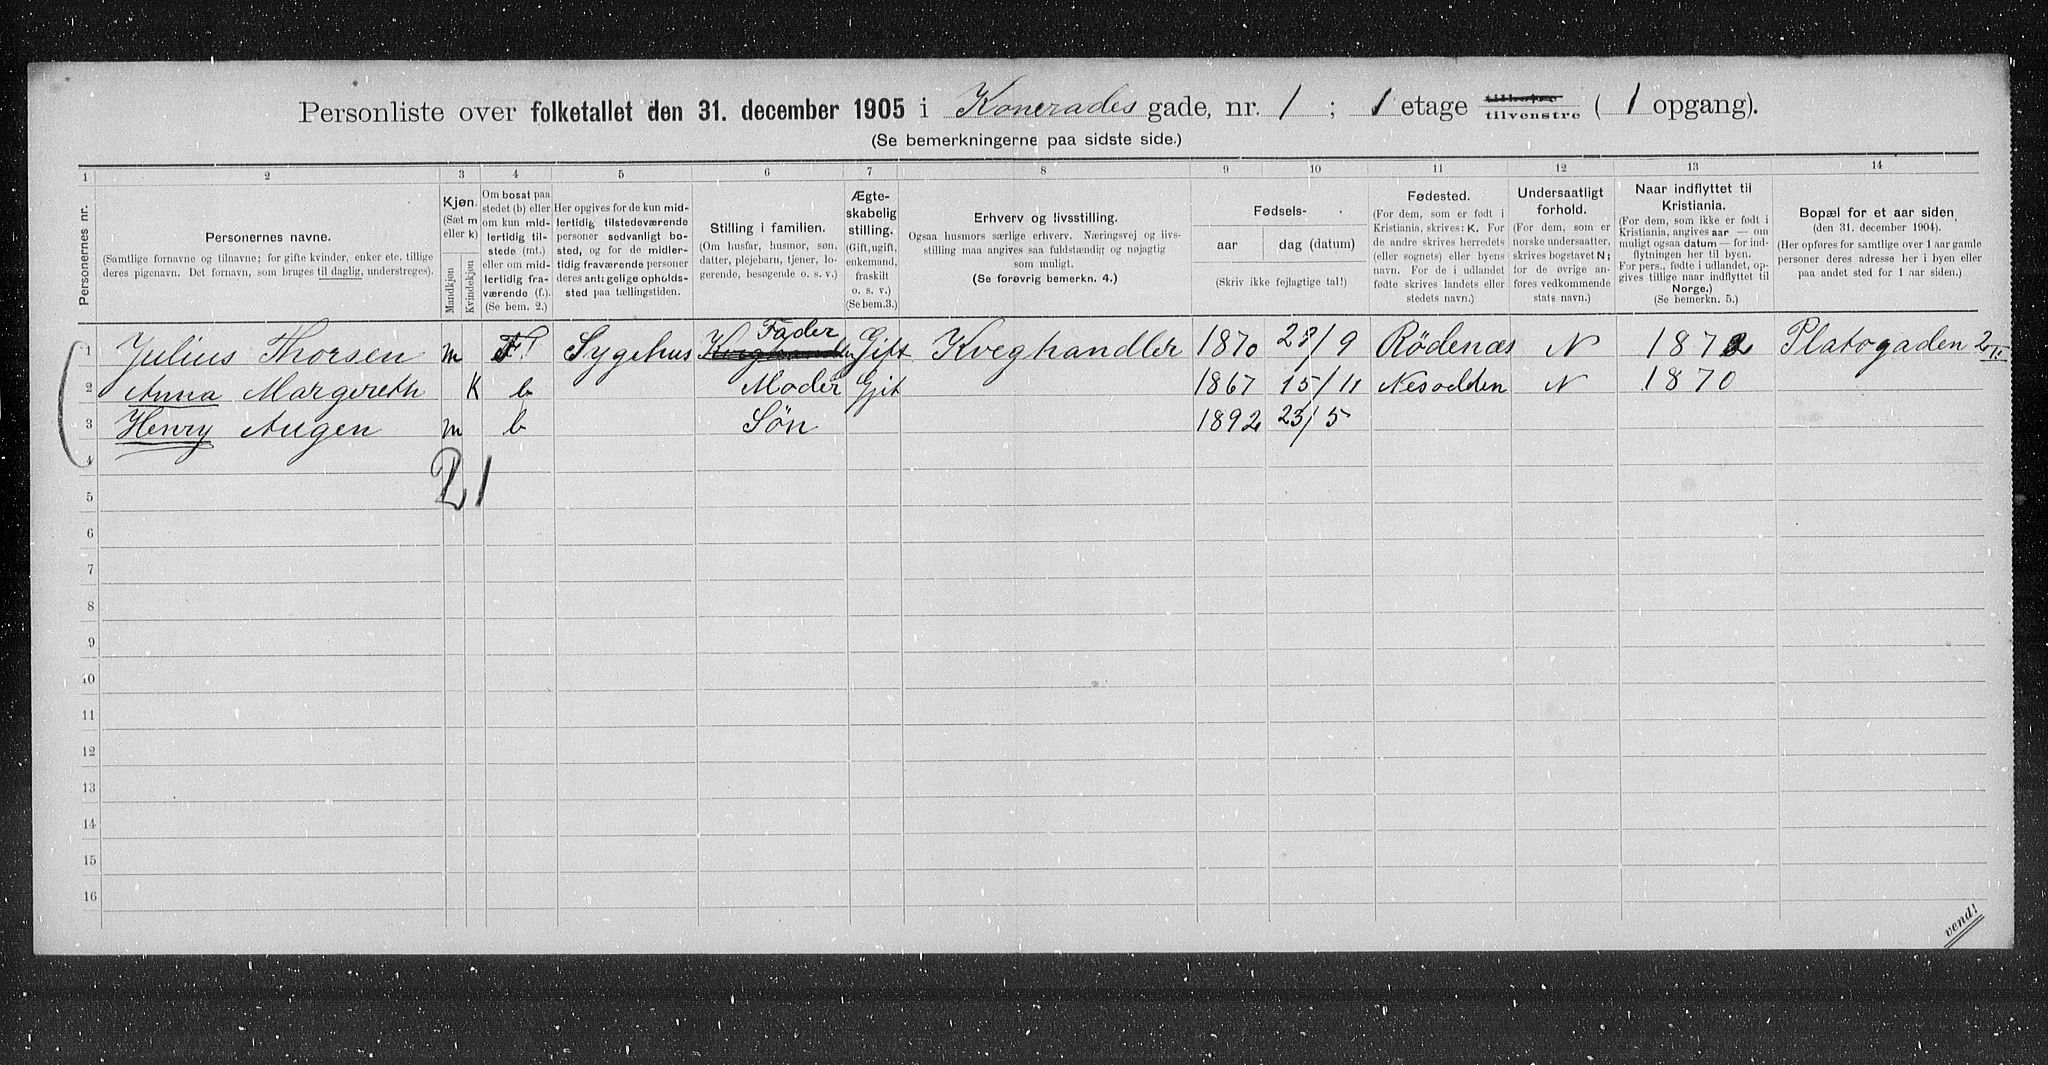 Personliste over folketallet den 31. december 1905 i Konerades gade, nr. 1 ; 1 etage tilhøire tilvenstre ( 1 opgang).
(Se bemerkningerne paa sidste side.)
1 2 3 4 5 6 7 8 9 10 11 12 13 14
Personernes nr.
Personernes navne.
(Samtlige fornavne og tilnavne; for gifte kvinder, enker etc. tillige
deres pigenavn. Det fornavn, som bruges til daglig, understreges).
Kjøn.
(Sæt m
eller k)
Mandkjøn
Kvindekjøn
Om bosat paa
stedet (b) eller
om kun mid-
lertidig til-
stede (mt.)
eller om mid-
lertidig fra-
værende (f.).
(Se bem. 2.)
Her opgives for de kun mid-
lertidig tilstedeværende
personer sedvanligt bo-
sted, og for de midler-
tidig fraværende personer
deres antagelige opholds-
sted paa tællingstiden.
Stilling i familien.
(Om husfar, husmor, søn,
datter, plejebarn, tjener, lo-
gerende, besøgende o. s. v.)
Ægte-
skabelig
stilling.
(Gift, ugift,
enkemand,
fraskilt
o. s. v.)
(Se bem. 3.)
Erhverv og livsstilling.
Ogsaa husmors særlige erhverv. Næringsvej og livs-
stilling maa angives saa fuldstændig og nøjagtig
som muligt.
(Se forøvrig bemerkn. 4.)
Fødsels-
aar dag (datum)
(Skriv ikke fejlagtige tal!)
Fødested.
(For dem, som er født i
Kristiania, skrives: K. For
de andre skrives herredets
(eller sognets) eller byens
navn. For de i udlandet
fødte skrives landets eller
stedets navn.)
Undersaatligt
forhold.
(For dem, som er
norske undersaatter,
skrives bogstavet N;
for de øvrige an-
føres vedkommende
stats navn.)
Naar indflyttet til
Kristiania.
(For dem, som ikke er født i
Kristiania, angives aar — om
muligt ogsaa datum — for ind-
flytningen her til byen.
For pers., fødte i udlandet, op-
gives tillige naar indflyttet til
Norge.)
(Se bemerkn. 5.)
Bopæl for et aar siden
(den 31. december 1904).
(Her opføres for samtlige over 1 aar gamle
personer deres adresse her i byen eller
paa andet sted for 1 aar siden.)
1 Julius Thorsen m F Sygehus Fader Gift Kveghandler 1870 23/9 Rødenæs N 1872 Platogaden 2
2 Anna Margreth K b Moder Gift 1867 15/11 Nesodden N 1870
3 Henry Augen m b Søn 1892 23/5
4
21
5
6
7
8
9
10
11
12
13
14
15
16
vend!